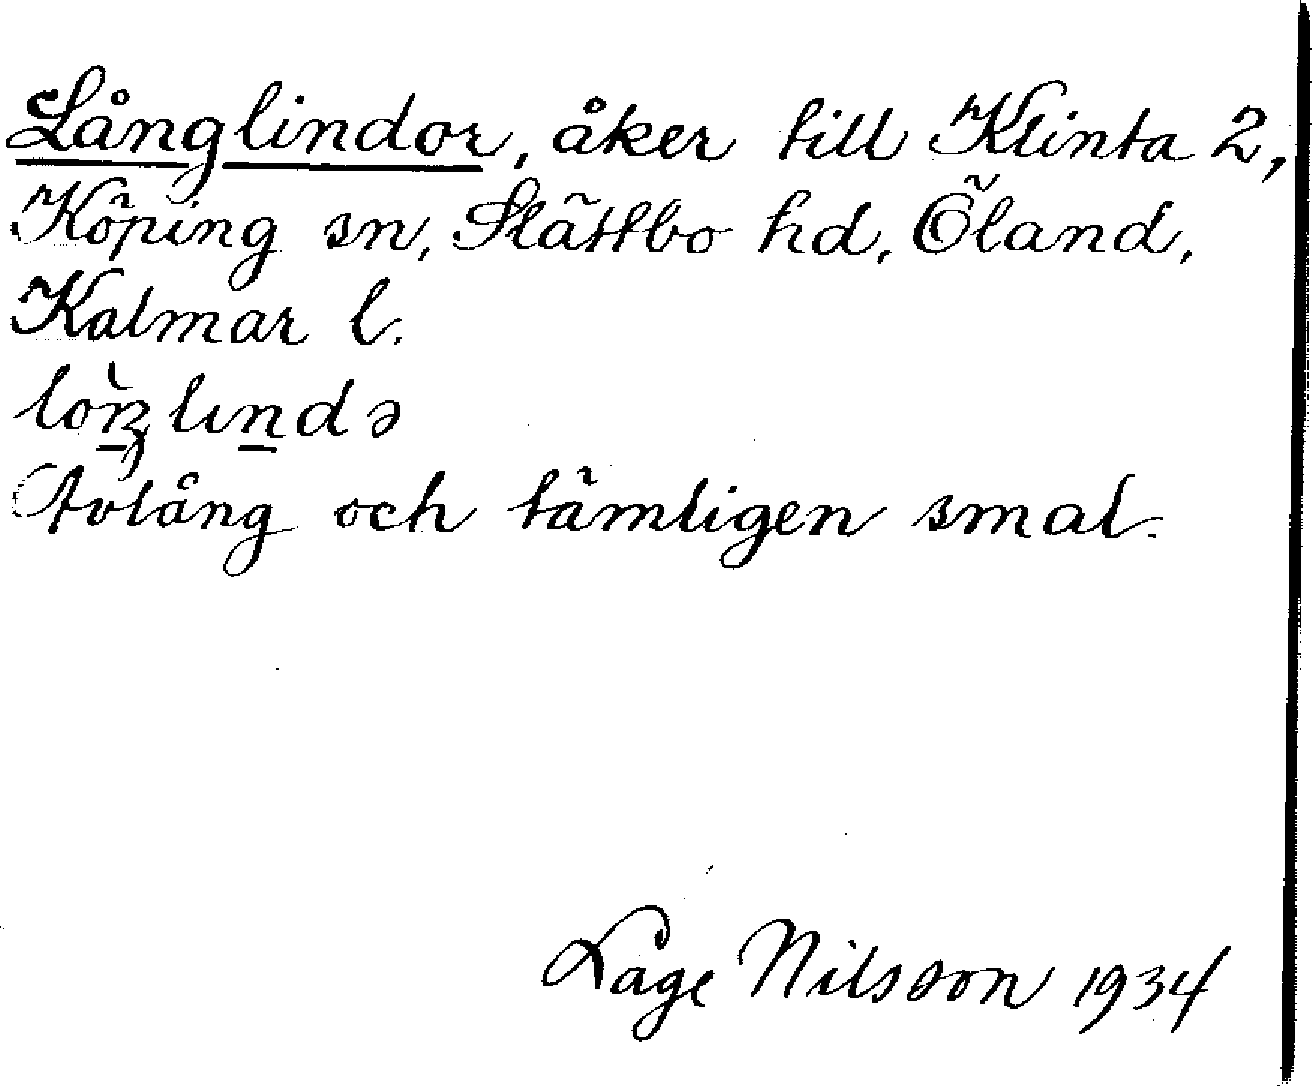 Långlindor, åker till Klinta 2,
Köping sn, Slättbo hd, Öland,
Kalmar l.
Avlång och tämligen smal.
Låge Nilsson 1934